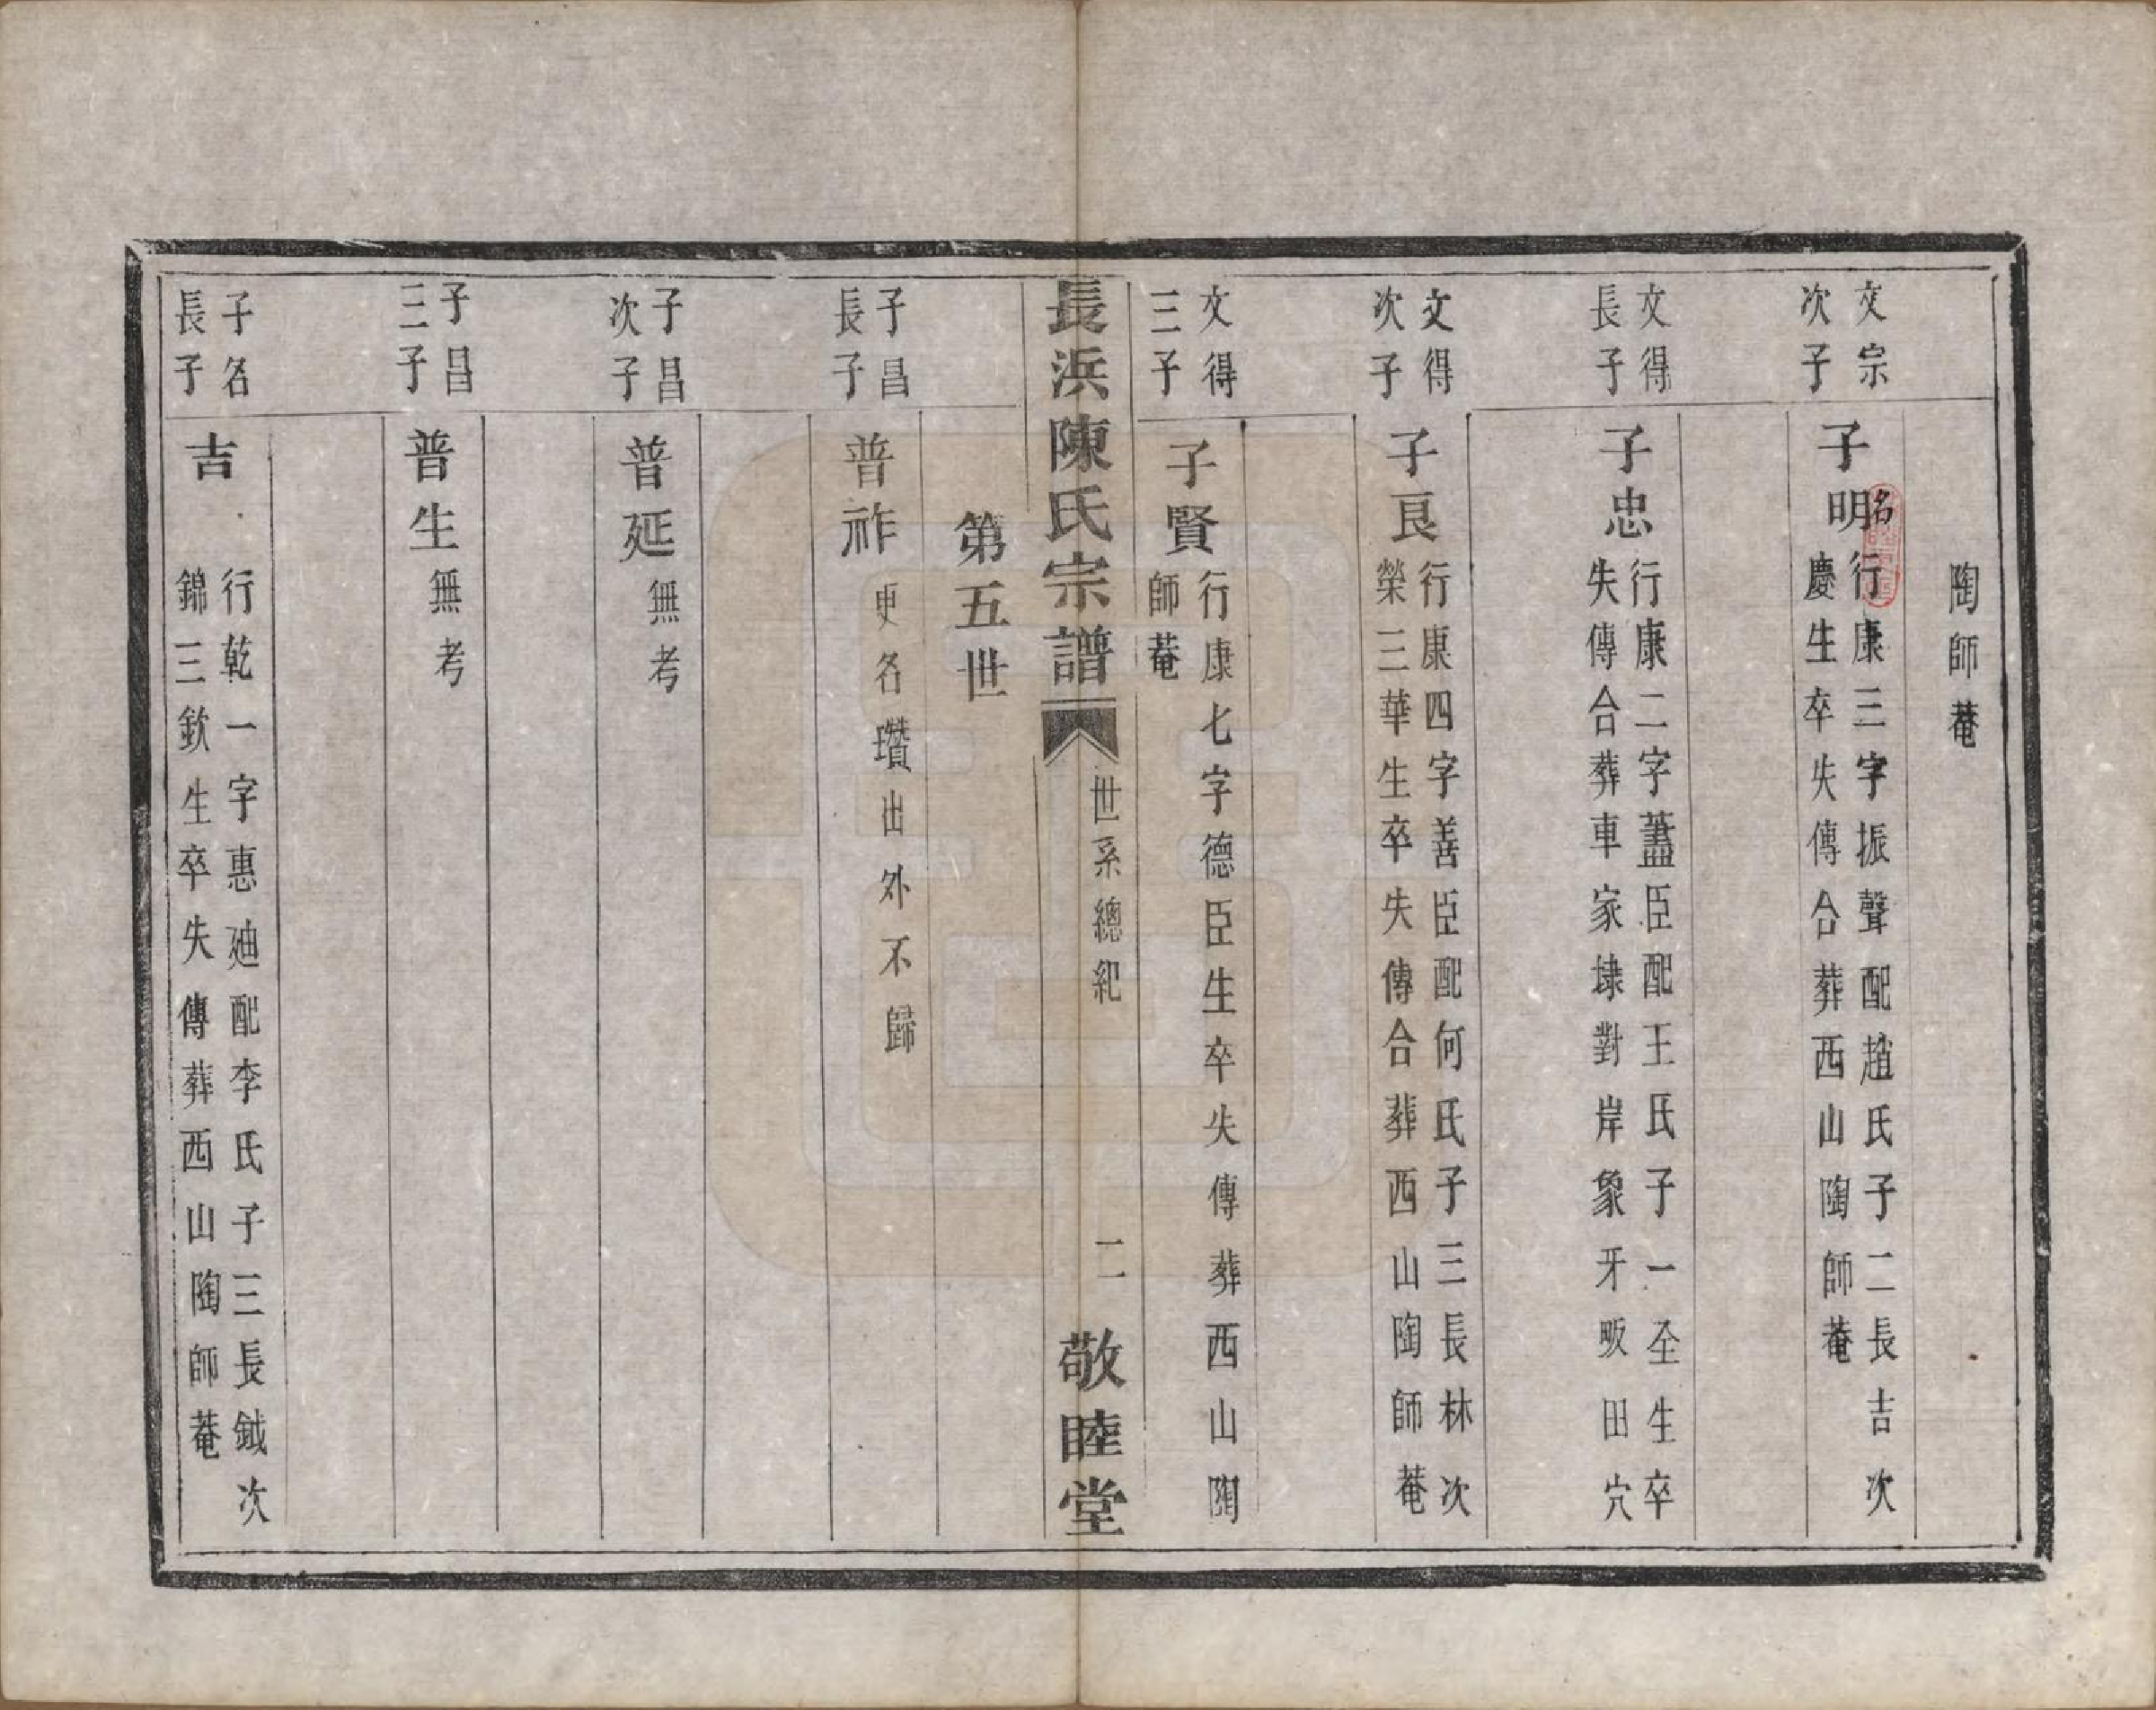 陶師菴
文宗
次子
子明
名
行康三字振聲配趙氏子二長吉次
慶生卒失傳合葬西山陶師菴
文得
長子
子忠
行康二字藎臣配王氏子一全生卒
失傳合葬車家埭對岸象牙畈田穴
文得
次子
子良
行康四字善臣配何氏子三長林次
榮三華生卒失傳合葬西山陶師菴
文得
三子
子賢
行康七字德臣生卒失傳葬西山陶
師菴
長浜陳氏宗譜
世系總紀
二
敬睦堂
第五世
子昌
長子
普祚
更名瓚出外不歸
子昌
次子
普延
無考
子昌
三子
普生
無考
子名
長子
吉
行乾一字惠廸配李氏子三長鉞次
錦三欽生卒失傳葬西山陶師菴